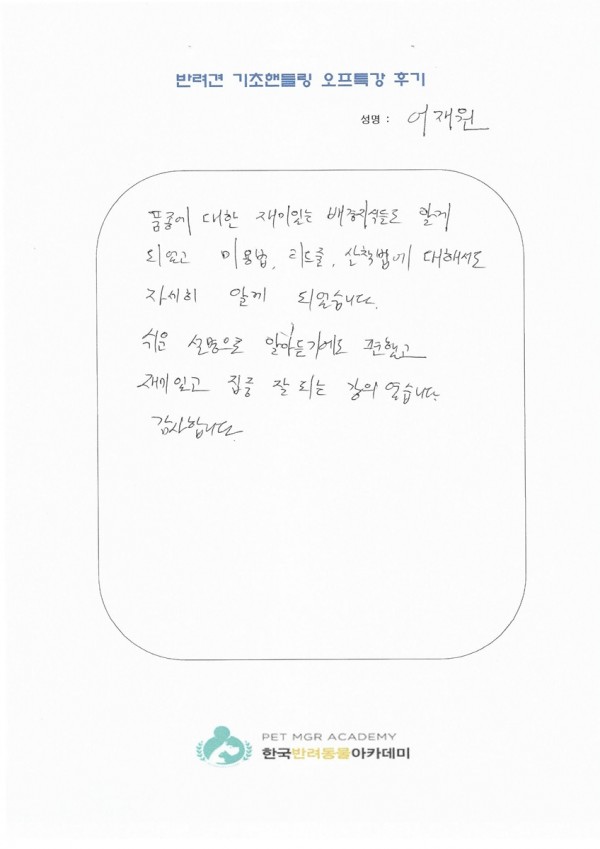 반려견 기초핸들링 오프특강 후기
성명 : 어재원
품종에 대한 재미있는 배경지식들도 알게
되었고 미용법, 리드줄, 산책법에 대해서도
자세히 알게 되었습니다.
쉬운 설명으로 알아듣기에도 편했고
재미있고 집중 잘 되는 강의 였습니다.
감사합니다.
PET MGR ACADEMY
한국반려동물아카데미